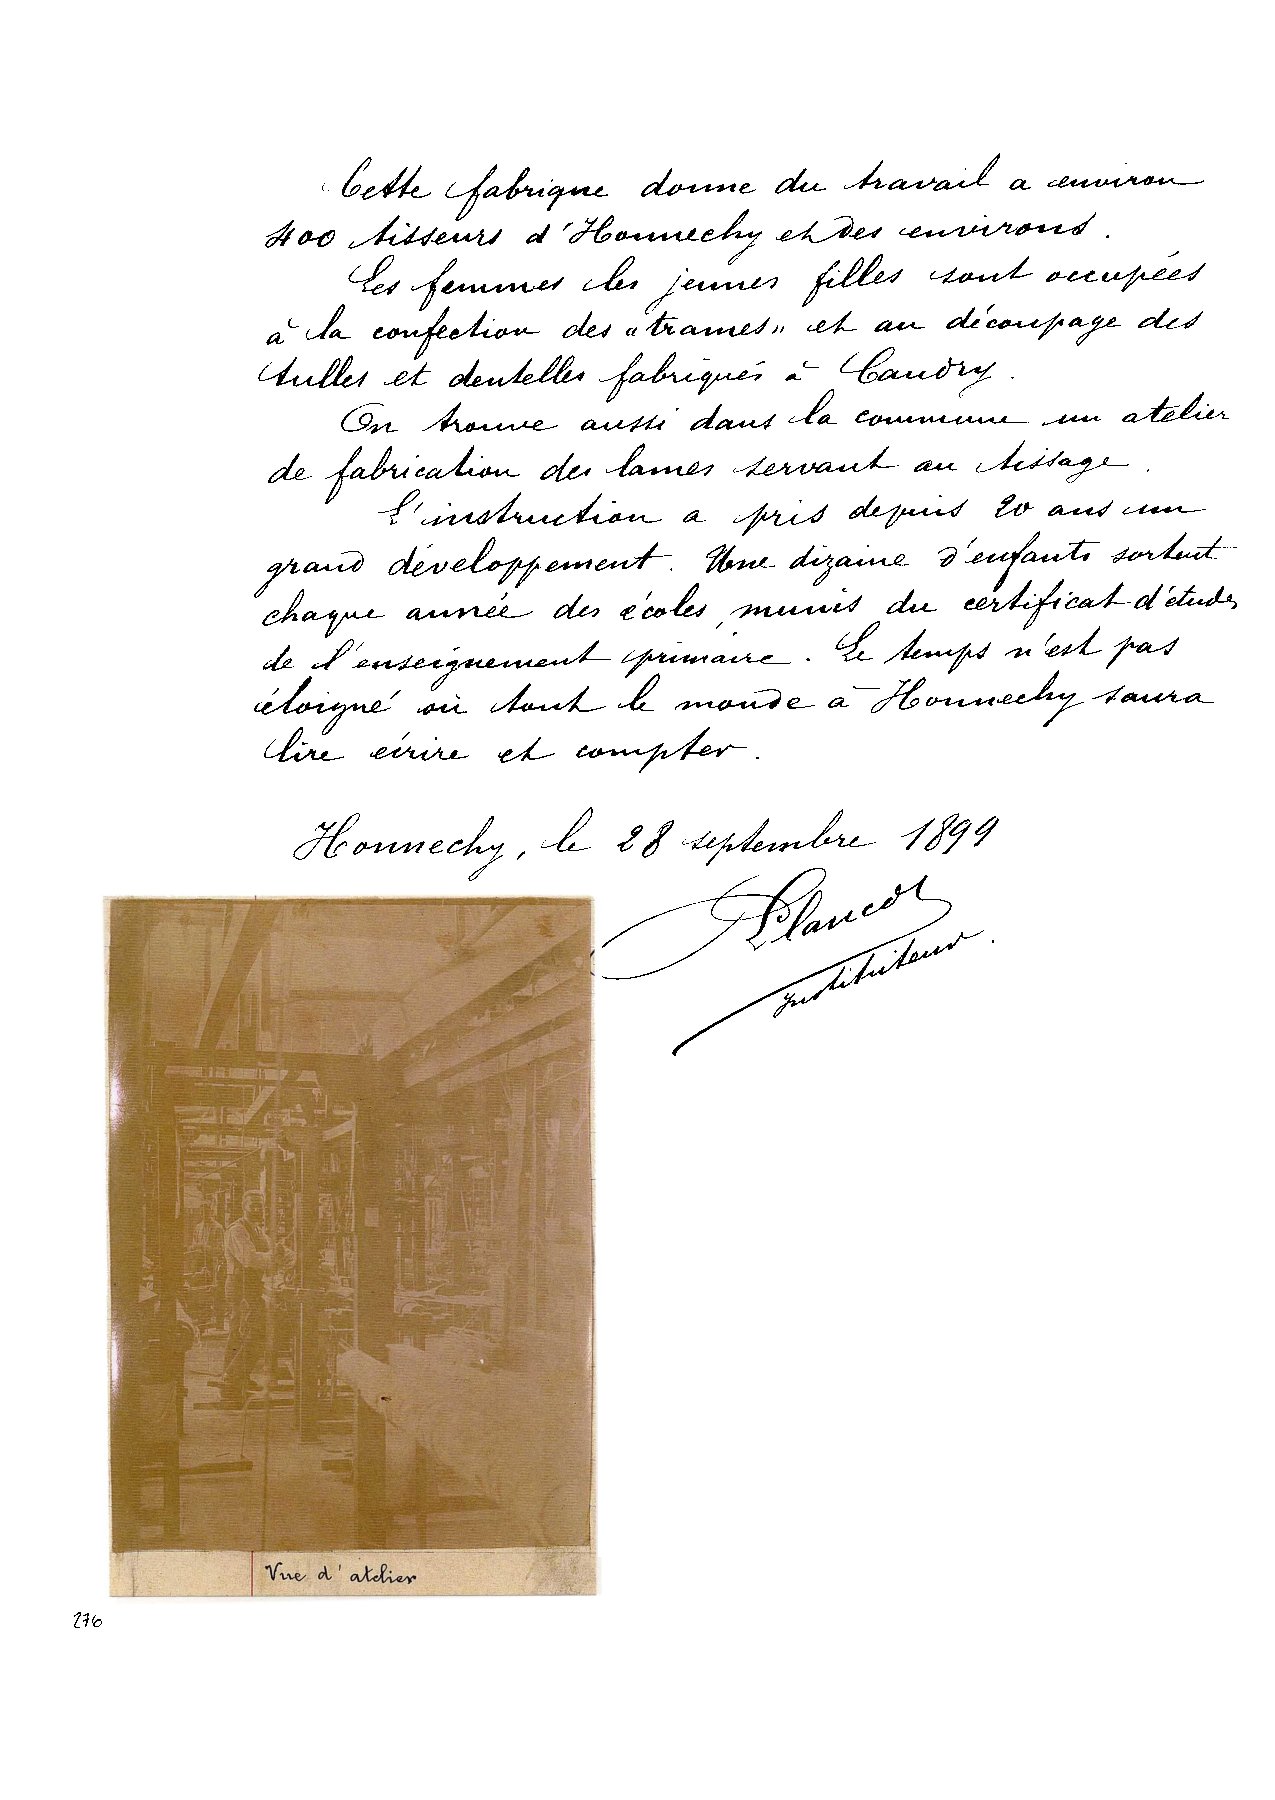 Cette fabrique donne du travail a environ
400 tisseurs d'Honnechy et des environs.
Les femmes les jeunes filles sont occupées
à la confection des "trames" et au découpage des
tulles et dentelles fabriqués à Caudry.
On trouve aussi dans la commune un atelier
de fabrication des lames servant au tissage.
L'instruction a pris depuis 20 ans un
grand développement. Une dizaine d'enfants sortent
chaque année des écoles, munis du certificat d'études
de l'enseignement primaire. Le temps n'est pas
éloigné où tout le monde à Honnechy saura
lire écrire et compter.
Honnechy, le 28 septembre 1899
Instituteur.
Vue d'atelier
276